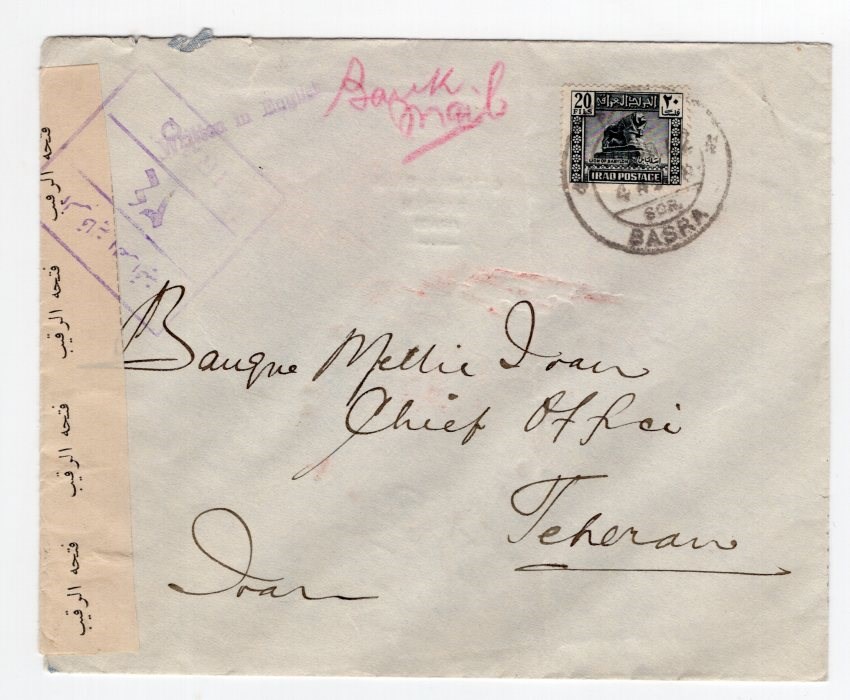 Bank
Mail
Written in English
20
FILS
٢٠
فلس
IRAQ POSTAGE
SOR.
BASRA
Banque Mellie Iran
Chief Office
Teheran
Iran
فتحه الرقيب
فتحه الرقيب
فتحه الرقيب
فتحه الرقيب